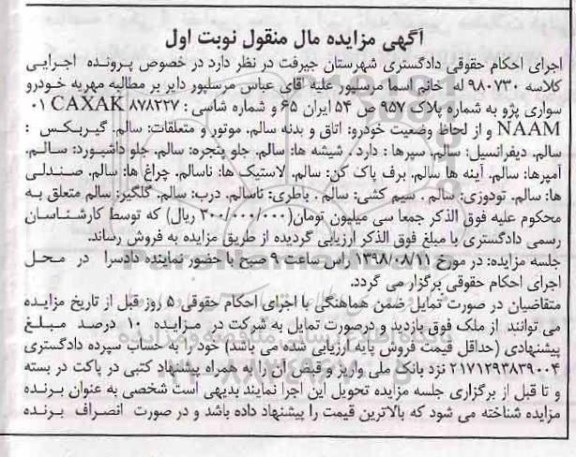 آگهی مزایده مال منقول نوبت اول
اجرای احکام حقوقی دادگستری شهرستان جیرفت در نظر دارد در خصوص پرونده اجرایی
کلاسه ۹۸۰۷۳۰ له خانم اسما مرسلپور علیه آقای عباس مرسلپور دایر بر مطالبه مهریه خودرو
سواری پژو به شماره پلاک ۹۵۷ ص ۵۴ ایران ۶۵ و شماره شاسی : CAXAK ۸۷۸۲۲۷ ۰۱
NAAM و از لحاظ وضعیت خودرو: اتاق و بدنه سالم. موتور و متعلقات: سالم. گیربکس :
سالم. دیفرانسیل: سالم. سپرها : دارد . شیشه ها: سالم. جلو پنجره: سالم. جلو داشبورد: سالم.
آمپرها: سالم. آینه ها سالم. برف پاک کن: سالم. لاستیک ها: ناسالم. چراغ ها: سالم. صندلی
ها: سالم. تودوزی: سالم . سیم کشی: سالم . باطری: ناسالم. درب: سالم. گلگیر: سالم متعلق به
محکوم علیه فوق الذکر جمعا سی میلیون تومان(۳۰۰/۰۰۰/۰۰۰ ریال) که توسط کارشناسان
رسمی دادگستری با مبلغ فوق الذکر ارزیابی گردیده از طریق مزایده به فروش رساند.
جلسه مزایده: در مورخ ۱۳۹۸/۰۸/۱۱ راس ساعت ۹ صبح با حضور نماینده دادسرا در محل
اجرای احکام حقوقی برگزار می گردد.
متقاضیان در صورت تمایل ضمن هماهنگی با اجرای احکام حقوقی ۵ روز قبل از تاریخ مزایده
می توانند از ملک فوق بازدید و درصورت تمایل به شرکت در مزایده ۱۰ درصد مبلغ
پیشنهادی (حداقل قیمت فروش پایه ارزیابی شده می باشد) خود را به حساب سپرده دادگستری
۲۱۷۱۲۹۳۸۳۹۰۰۴ نزد بانک ملی واریز و قبض آن را به همراه پیشنهاد کتبی در پاکت در بسته
و تا قبل از برگزاری جلسه مزایده تحویل این اجرا نمایند بدیهی است شخصی به عنوان برنده
مزایده شناخته می شود که بالاترین قیمت را پیشنهاد داده باشد و در صورت انصراف برنده